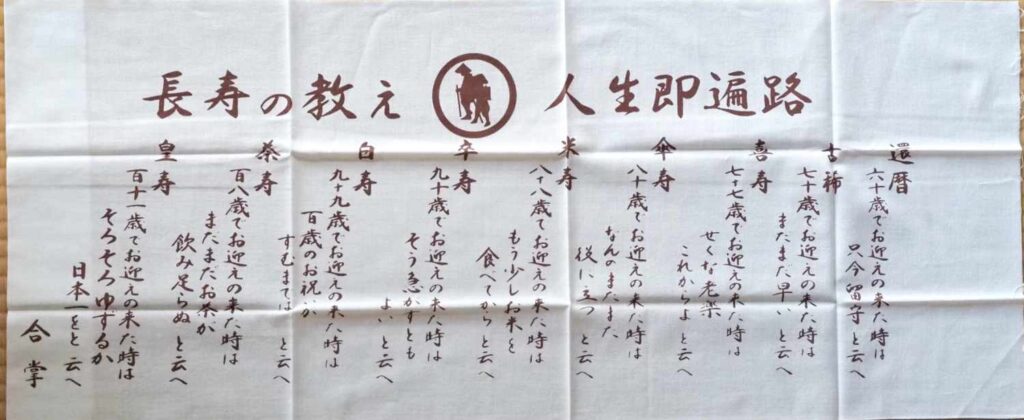 長寿の教え 人生即遍路
還暦
六十歳でお迎えの来た時は
只今留守と云へ
古稀
七十歳でお迎えの来た時は
まだまだ早いと云へ
喜寿
七十七歳でお迎えの来た時は
せくな老楽
これからよと云へ
傘寿
八十歳でお迎えの来た時は
なんのまだまだ
役に立つと云へ
米寿
八十八歳でお迎えの来た時は
もう少しお米を
食べてからと云へ
卒寿
九十歳でお迎えの来た時は
そう急がずとも
よいと云へ
白寿
九十九歳でお迎えの来た時は
百歳のお祝が
すむまではと云へ
茶寿
百八歳でお迎えの来た時は
まだまだお茶が
飲み足らぬと云へ
皇寿
百十一歳でお迎えの来た時は
そろそろゆずるか
日本一をと云へ
合掌